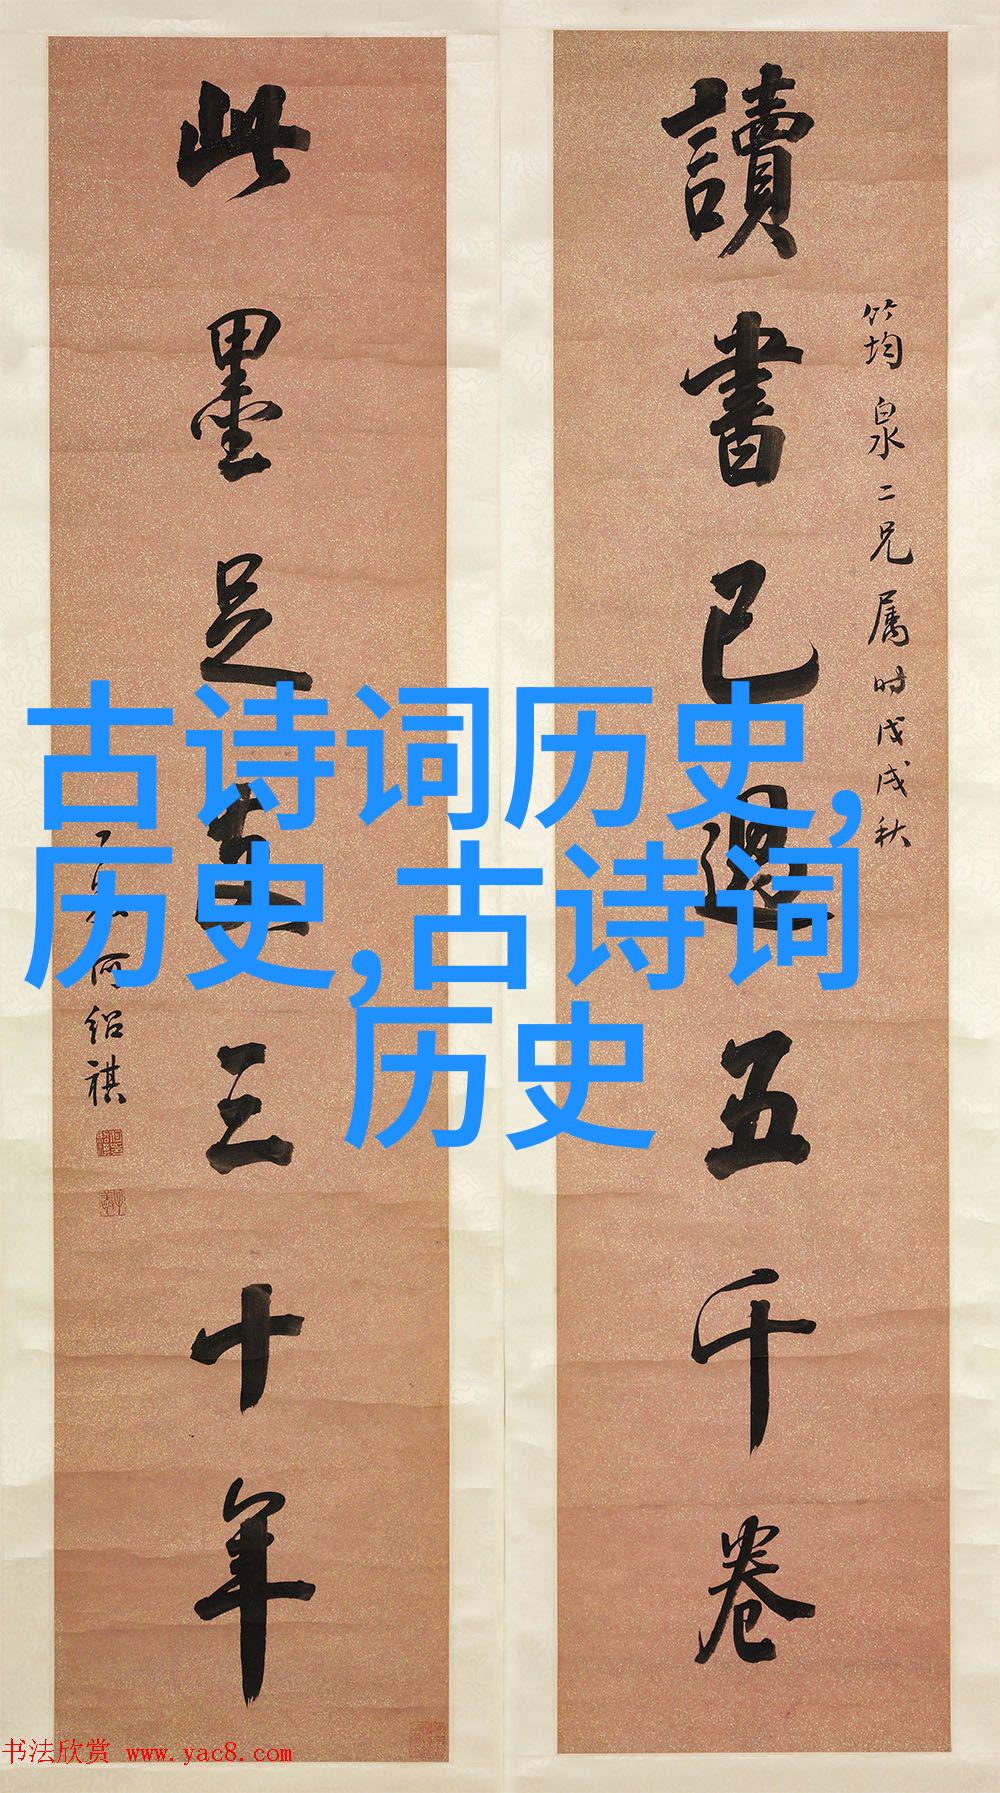 讀書已過五千卷
筠泉二兄属时戊戌秋
此墨足支三十年
何绍祺
古诗词历史,
历史,古诗词
历史
书法欣赏 www.yac8.com